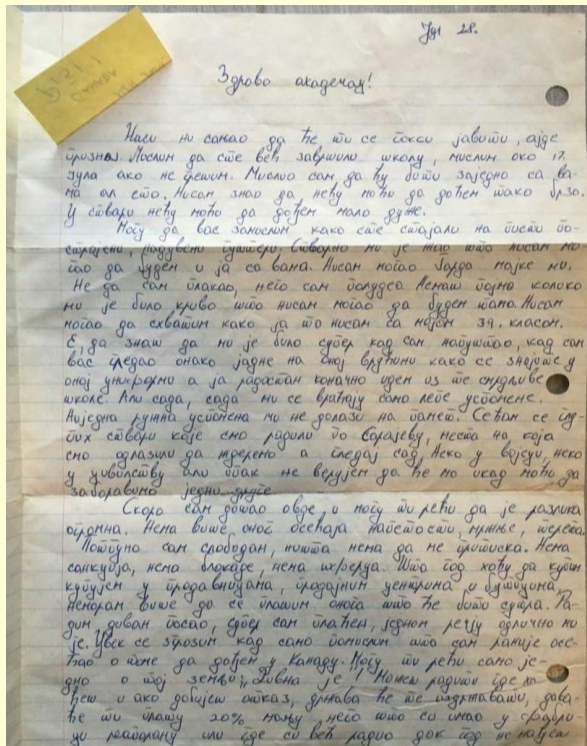 Јул 28.
Здраво академац!
Ниси ни сањао да ће ти се токси јавити, ајде
признај. Мислим да сте већ завршили школу, мислим око 17.
јула ако не грешим. Мислио сам да ћу бити заједно са ва-
ма ал ето. Нисам знао да нећу моћи да дођем тако брзо.
У ствари нећу моћи да дођем мало дуже.
Могу да вас замислим како сте стајали на писти по-
стројени, надувени гуштери. Стварно ми је жао што нисам мо-
гао да будем и ја са вама. Нисам могао мајке ми.
Не да сам плакао, него сам полудео. Немаш појма колико
ми је било криво што нисам могао да будем тамо. Нисам
могао да схватим како ја то нисам са мојом 39. класом.
Е, да знаш да ми је било супер кад сам напуштао, кад сам
вас гледао онако јадне на оној врућини како се знојите у
оној униформи а ја радостан коначно идем из те смрдљиве
школе. Али сада, сада ми се враћају само лепе успомене.
Ниједна ружна успомена ми не долази на памет. Сећам се глу-
пих ствари које смо радили по Сарајеву, места на која
смо одлазили да ждеремо а гледај сад, неко у војсци, неко
у цивилству али ипак не верујем да ће мо икад моћи да
заборавимо једни друге
Скоро сам дошао овде, и могу ти рећи да је разлика
огромна. Нема више оног осећаја напетости, мржње, терета.
Потпуно сам слободан, ништа нема да ме притиска. Нема
санкција, нема блокаде, нема Што год хоћу да купим
купујем у продавницама, продајним центрима и бутицима,
неморам више да се плашим онога што ће бити сутра. Ра-
дим диван посао, супер сам плаћен, једном речју одлично ми
је. Увек се згрозим кад само помислим што сам раније осе-
ћао о томе да дођем у Канаду. Могу ти рећи само је-
дно о тој земљи: „Дивна је“! Можеш радити где хо-
ћеш и ако добијеш отказ, држава ће те издржавати, дава-
ће ти плату 20% мању него што си имао у фабри-
ци ресторану или где си већ радио док год не нађеш